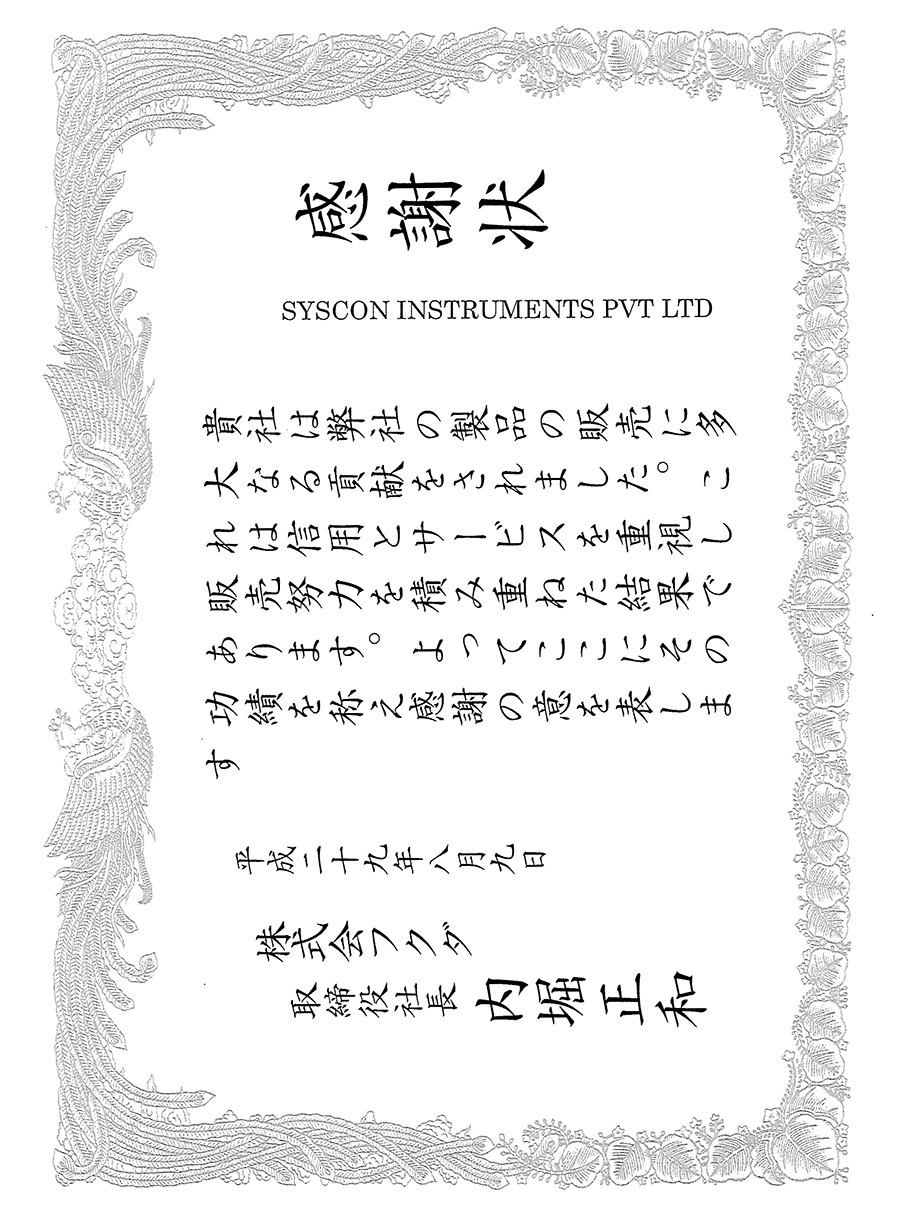 感謝状
SYSCON INSTRUMENTS PVT LTD
貴社は弊社の製品の販売に多
大なる貢献をされました。こ
れは信用とサービスを重視し
販売努力を積み重ねた結果で
あります。よってここにその
功績を称え感謝の意を表しま
す
平成二十九年八月九日
株式会フクダ
取締役社長 内堀正和